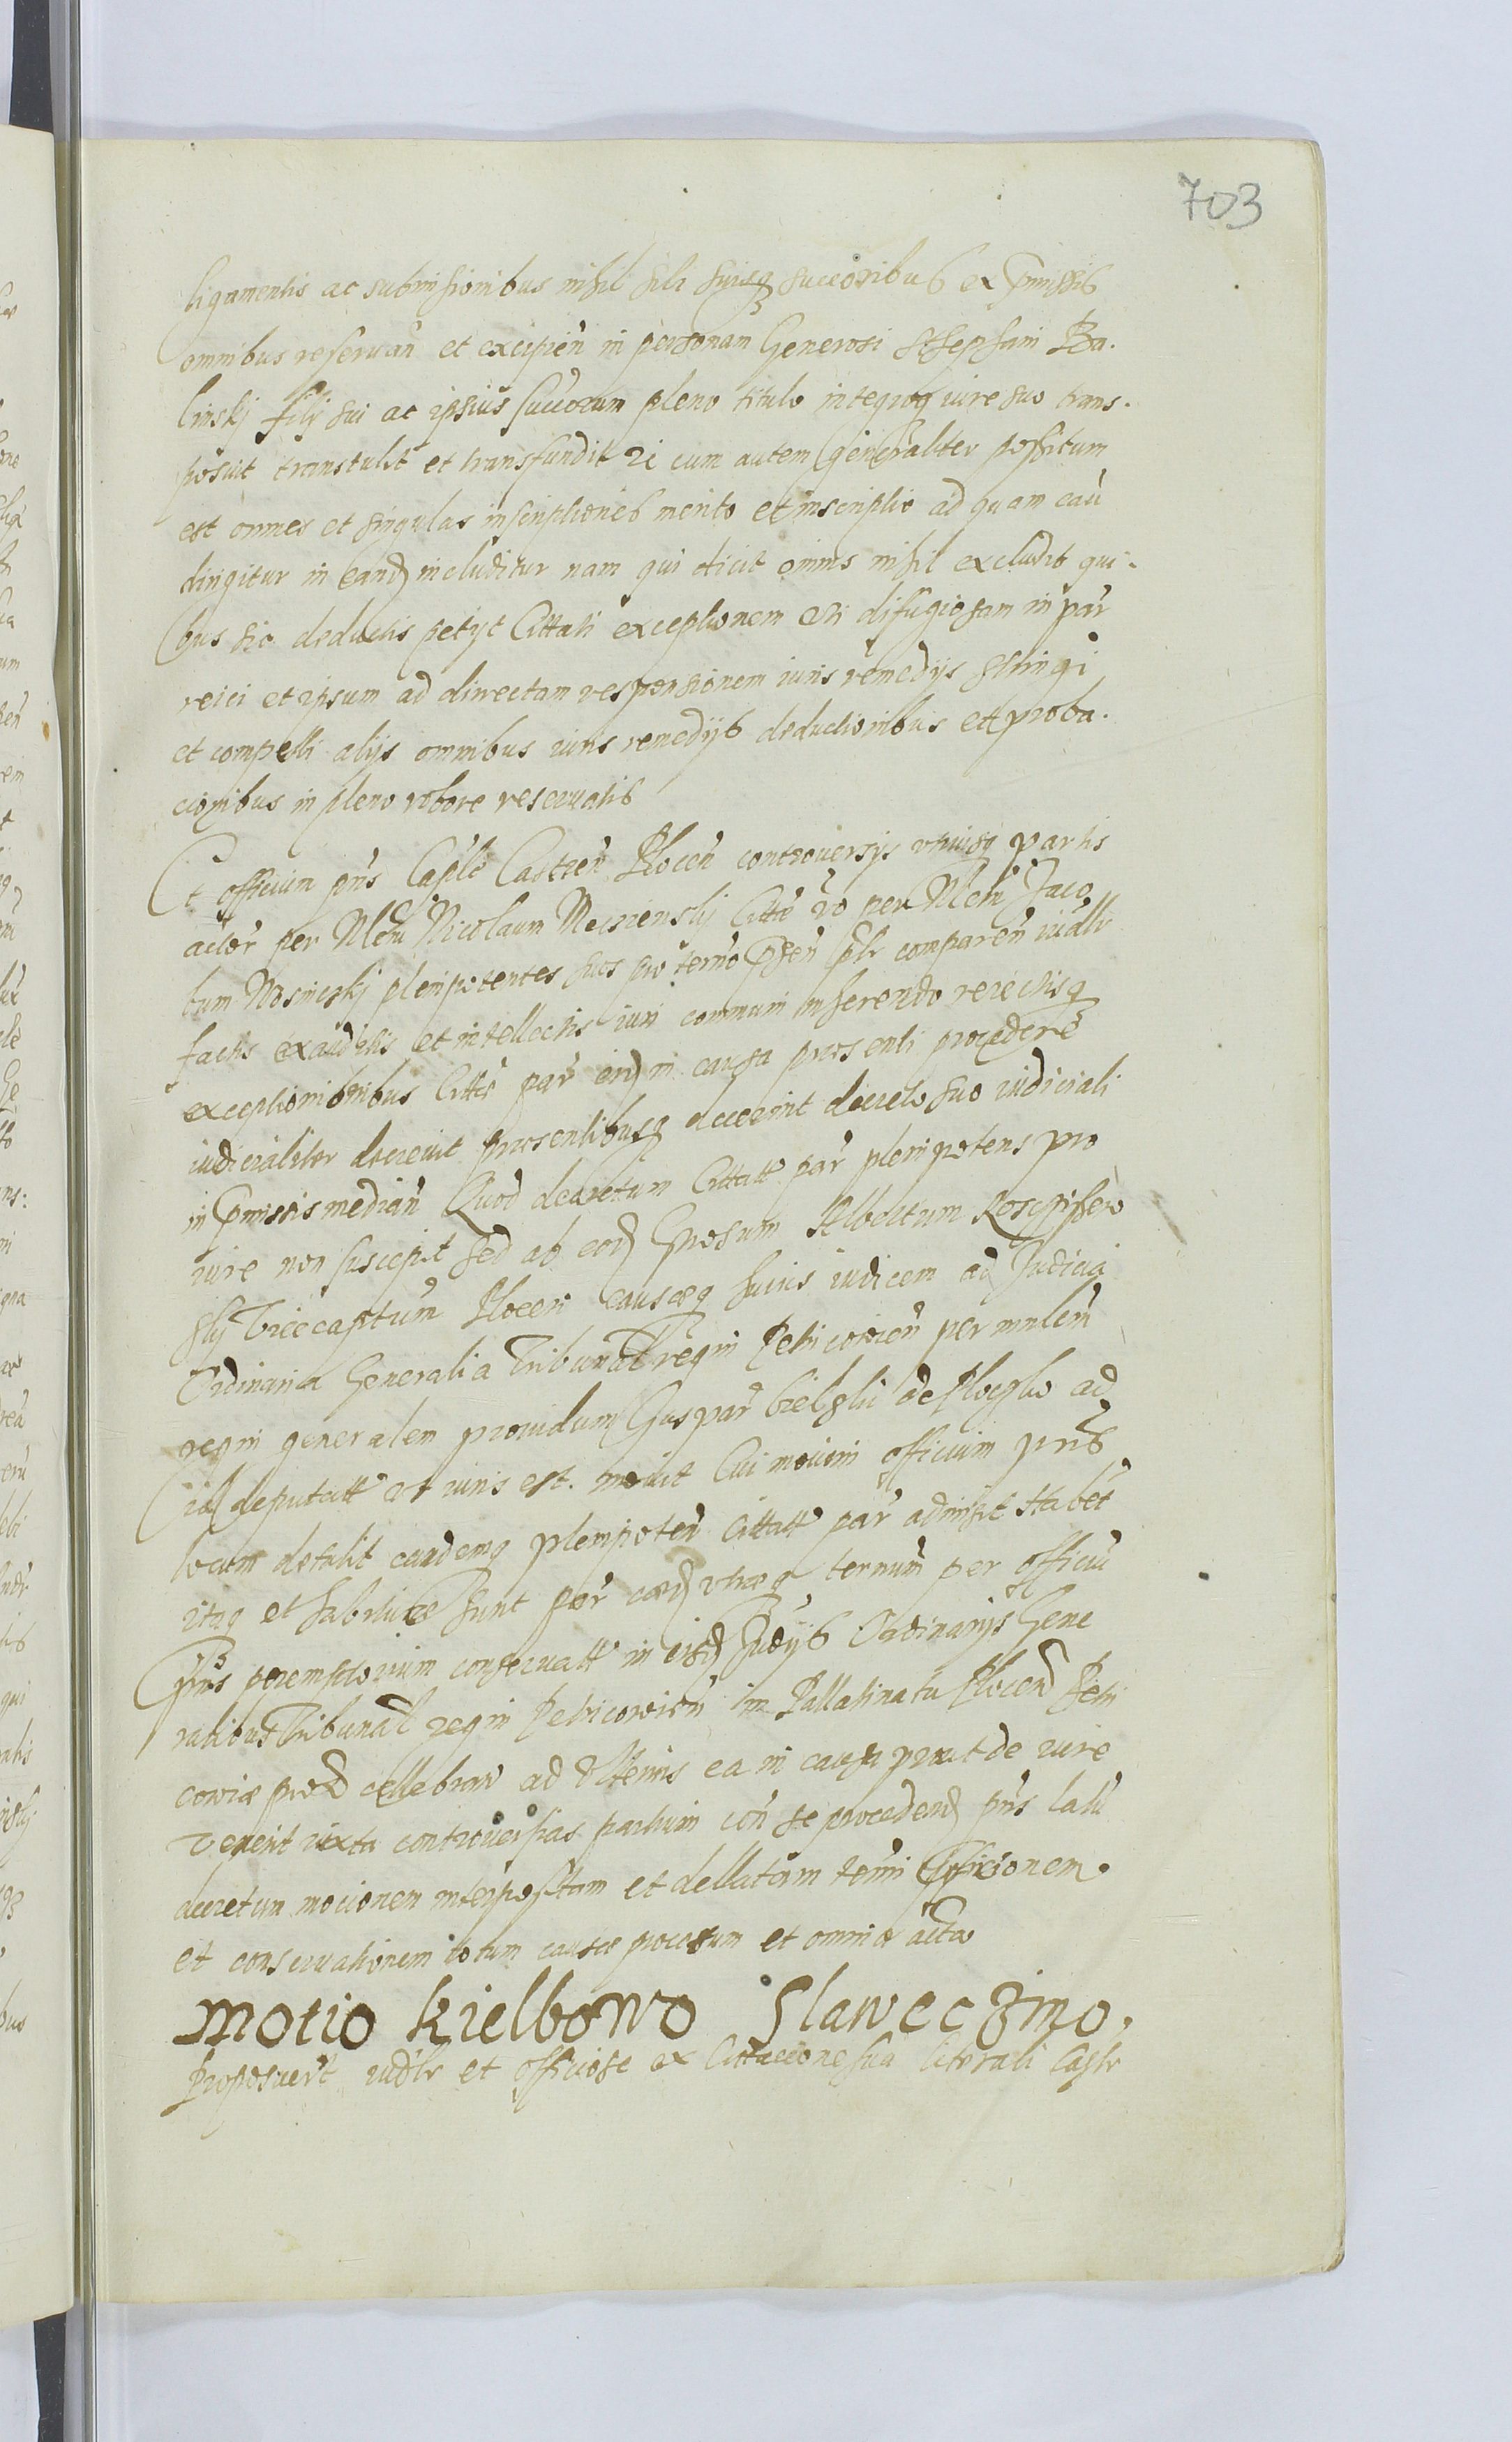 703
ligamentis ac submissionibus nihil sibi suisq successoribus ex pmissis
omnibus reseruan̄ et excipien̄ in personam Generosi Stephani Ba.
linskj filij sui ac ipsius succorum pleno titulo integroq iure suo trans.
posuit transtulit et transfundit 2i cum autem generaliter possitum
est omnes et singulas inscriptiones merito et inscriptio ad quam cau
dirigitur in eand includitur nam qui dicit omnis nihil excludit qui.
bus sic deductis petyt Cittati exceptionem uti difugiosam in par
reici et ipsum ad directam responsionem iuris remedijs stringi
et compelli alijs omnibus iuris remedijs deductionibus et proba.
cionibus in pleno robore reseruatis
Et officium pns Caple Castren Plocen controuersijs utriusq partis
actor per Nlem Nicolaum Meczienskj Citte vo per Nlem Jaco
bum Nosinskj plenipotentes suos pro termo psen plr comparen iudlr
factis exauditis et intellectis iuri communi inherendo reiectisq
exceptionibnibus Citte par eid in causa praesenti procedere
iudicialiter decreuit praesentibusq decernit decreto suo iudiciali
in pmissis median Quod decretum Cittatt par plenipotens pro
iure non suscepit sed ab eod Gnosum Albertum Kosczissew
skj Vicecaptum Plocen causaeq huius iudicem ad Judicia
Ordinaria Generalia Tribunal regni Petricouien per mnlem
regni generalem prouidum Gaspar Bielskii de Plocsko ad
id deputatt vt iuris est. mouit Cui motioni officium pns
locum detulit eandemq plenipoten Cittatt par admisit Habet
itaq et habiturae sunt par eaed utraeq termum per officiu
pns peremptorium conseruatt in eisd Judijs Ordinarijs Gene
ralibus Tribunal regni Petricouien in Pallatinatu Plocen Petri
couiae prox cellebran ad vlterius ea in causa prout de iure
venerit iuxta controuersias partium con se proceden pns latu
decretum mocionem interpositam et dellatam termi
et conseruationem totum causae processum et omnia acta
Motio Kielbowo Slaweczino.
Proposuert iudlr et officiose ex Cittaccione sua literali Castr